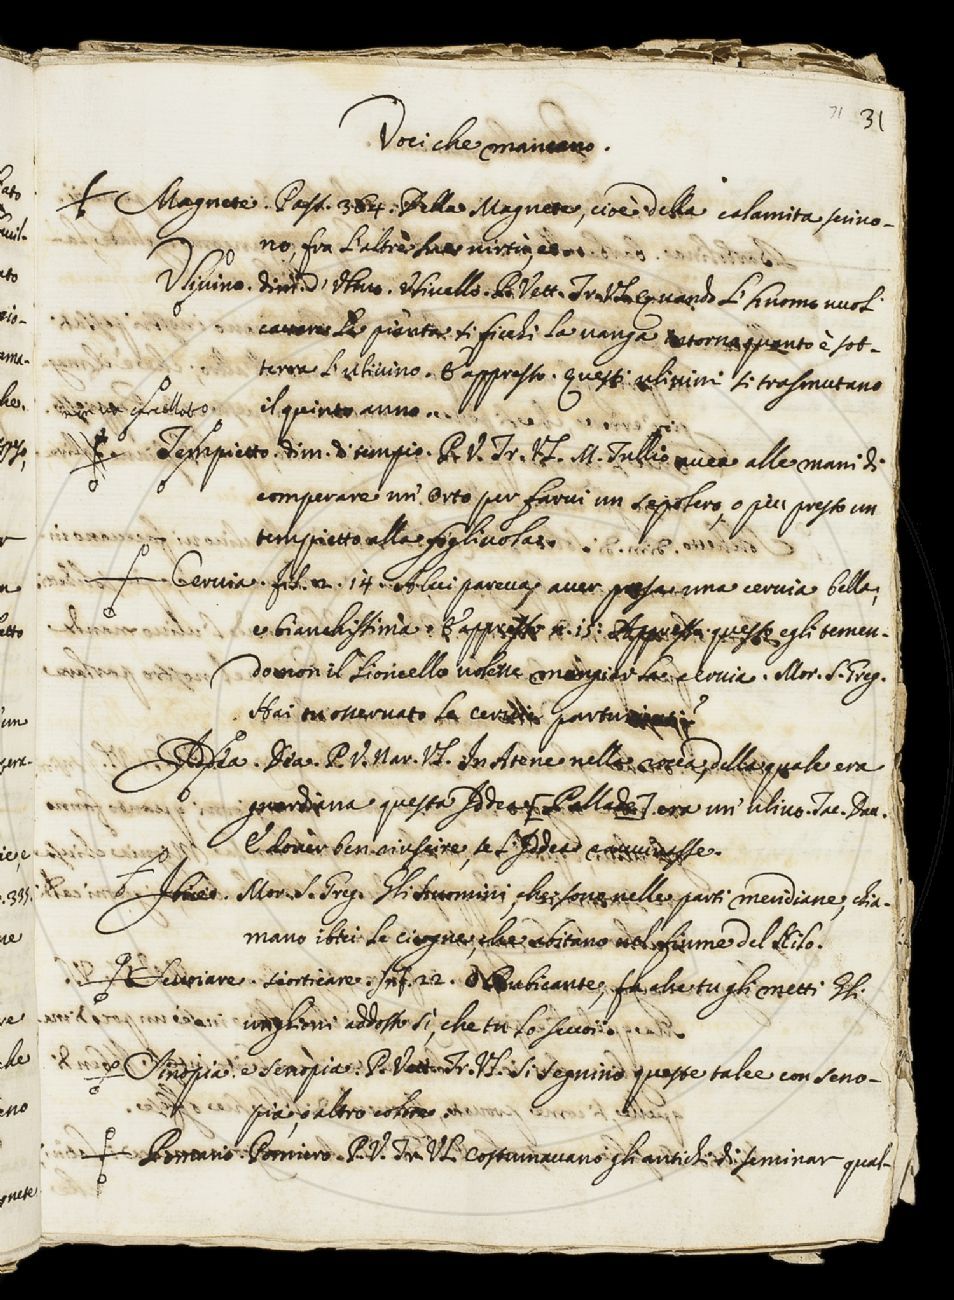 31 31
Voci che mancano.
Magnete. Pass. 364. Della Magnete, cioè della calamita scriuo-
no, fra l'altre sue uirtù,
Vliuino. dim. d'Vliuo. Vliuello. P. Vett. Tr. Vl. Quando l'huomo vuol
cauare le piante si ficchi la uanga intorno quanto è sot-
terra l'uliuino. E appresso. questi uliuini si trasmutano
il quinto anno.
Tempietto. dim. di tempio. P. V. Tr. Vl. M. Tullio auea alle mani di
comperare un' Orto per farui un sepolcro, o più presto un
tempietto alla figliuola.
Ceruia. fil. n. 14. A lui pareua auer presa una ceruia bella,
e bianchissima. E appresso n. 15. Appresso questo egli temen-
do non il lioncello volesse mangiar la ceruia. Mor. S. Greg.
Hai tu osseruato le ceruie parturienti?
Iddea. Dia. P. V. Nar. Vl. In Atene nella rocca, della quale era
guardiana questa Iddea [Pallade] era un' uliuo. Tac. Dau.
E douer ben riuscire, se l'Iddea
Ibicio. Mor. S. Greg. Gli huomini, che sono nelle parti meridiane, chia-
mano ibici le cicogne, che abitano nel fiume del Nilo.
Scuoiare. scorticare. Inf. 22. O Rubicante, fa che tu gli metti Gli
unghioni addosso sì, che tu lo scuoi.
Sinopia. e senopia. P. Vett. Tr. Vl. Si segnino queste talee con seno-
pia, o altro colore.
Pomario. Pomiero. P. V. Tr. Vl. Costumauano gli antichi di seminar qual-